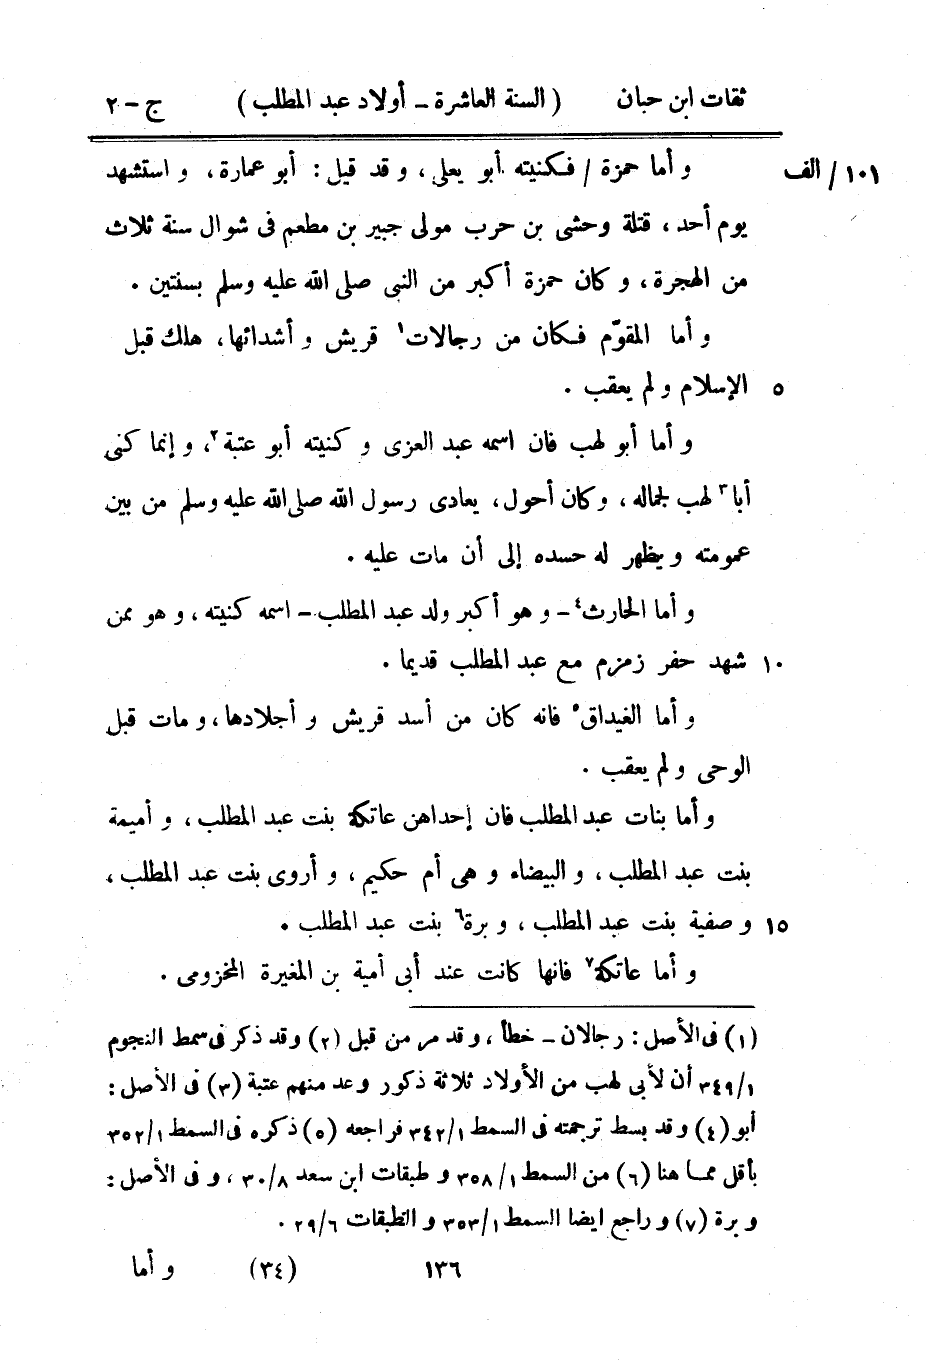 ثقات ابن حبان (السنة العاشرة - أولاد عبد المطلب) ج - ٢
١٠١/ الف و أما حمزة / فكنيته أبو يعلى، و قد قيل: أبو عمارة، و استشهد
يوم أحد، قتلة وحشى بن حرب مولى جبير بن مطعم فى شوال سنة ثلاث
من الهجرة، و كان حمزة أكبر من النبى صلى الله عليه وسلم بسنتين.
و أما المقوّم فكان من رجالات١ قريش و أشدائها، هلك قبل
٥ الإسلام و لم يعقب.
و أما أبو لهب فان اسمه عبد العزى و كنيته أبو عتبة٢، و إنما كنى
أبا٣ لهب لجماله، وكان أحول، يعادى رسول الله صلى الله عليه وسلم من بين
عمومته و يظهر له حسده إلى أن مات عليه.
و أما الحارث٤ - و هو أكبر ولد عبد المطلب - اسمه كنيته، و هو ممن
١٠ شهد حفر زمزم مع عبد المطلب قديما.
و أما الغيداق٥ فانه كان من أسد قريش و أجلادها، و مات قبل
الوحى و لم يعقب.
و أما بنات عبد المطلب فان إحداهن عاتكة بنت عبد المطلب، و أميمة
بنت عبد المطلب، و البيضاء و هى أم حكيم، و أروى بنت عبد المطلب،
١٥ و صفية بنت عبد المطلب، و برة٦ بنت عبد المطلب.
و أما عاتكة٧ فانها كانت عند أبى أمية بن المغيرة المخزومى.
(١) فى الأصل: رجالان - خطأ، و قد مر من قبل (٢) وقد ذكر فى سمط النجوم
٣٤٩/١ أن لأبى لهب من الأولاد ثلاثة ذكور و عد منهم عتبة (٣) فى الأصل:
أبو (٤) و قد بسط ترجمته فى السمط ٣٤٢/١ فراجعه (٥) ذكره فى السمط ٣٥٢/١
بأقل مما هنا (٦) من السمط ٣٥٨/١ و طبقات ابن سعد ٣٠/٨، و فى الأصل:
و برة (٧) و راجع ايضا السمط ٣٥٣/١ و الطبقات ٢٩/٦.
١٣٦ (٣٤) و أما